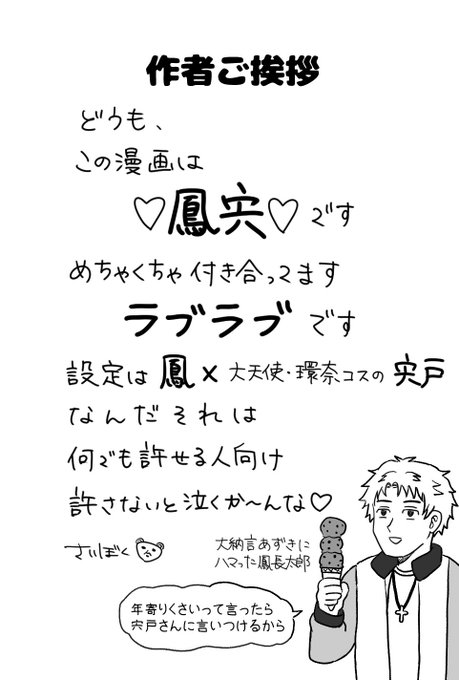 作者ご挨拶
どうも、
この漫画は
♡鳳宍♡です
めちゃくちゃ付き合ってます
ラブラブです
設定は鳳×大天使・環奈コスの宍戸
なんだそれは
何でも許せる人向け
許さないと泣くか〜んな♡
さいぼく
大納言あずきに
ハマった鳳長太郎
年寄りくさいって言ったら
宍戸さんに言いつけるから